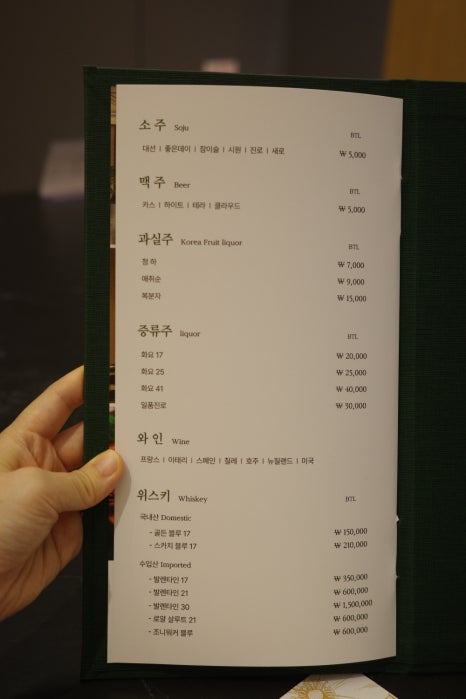 소 주 Soju
BTL
대선 I 좋은데이 I 참이슬 I 시원 I 진로 I 새로 ₩ 5,000
맥 주 Beer
BTL
카스 I 하이트 I 테라 I 클라우드 ₩ 5,000
과실주 Korea Fruit liquor
BTL
청 하 ₩ 7,000
매취순 ₩ 9,000
복분자 ₩ 15,000
증류주 liquor
BTL
화요 17 ₩ 20,000
화요 25 ₩ 25,000
화요 41 ₩ 40,000
일품진로 ₩ 30,000
와 인 Wine
프랑스 I 이태리 I 스페인 I 칠레 I 호주 I 뉴질랜드 I 미국
위스키 Whiskey
BTL
국내산 Domestic
- 골든 블루 17 ₩ 150,000
- 스카치 블루 17 ₩ 210,000
수입산 Imported
- 발렌타인 17 ₩ 350,000
- 발렌타인 21 ₩ 600,000
- 발렌타인 30 ₩ 1,500,000
- 로얄 살루트 21 ₩ 600,000
- 조니워커 블루 ₩ 600,000